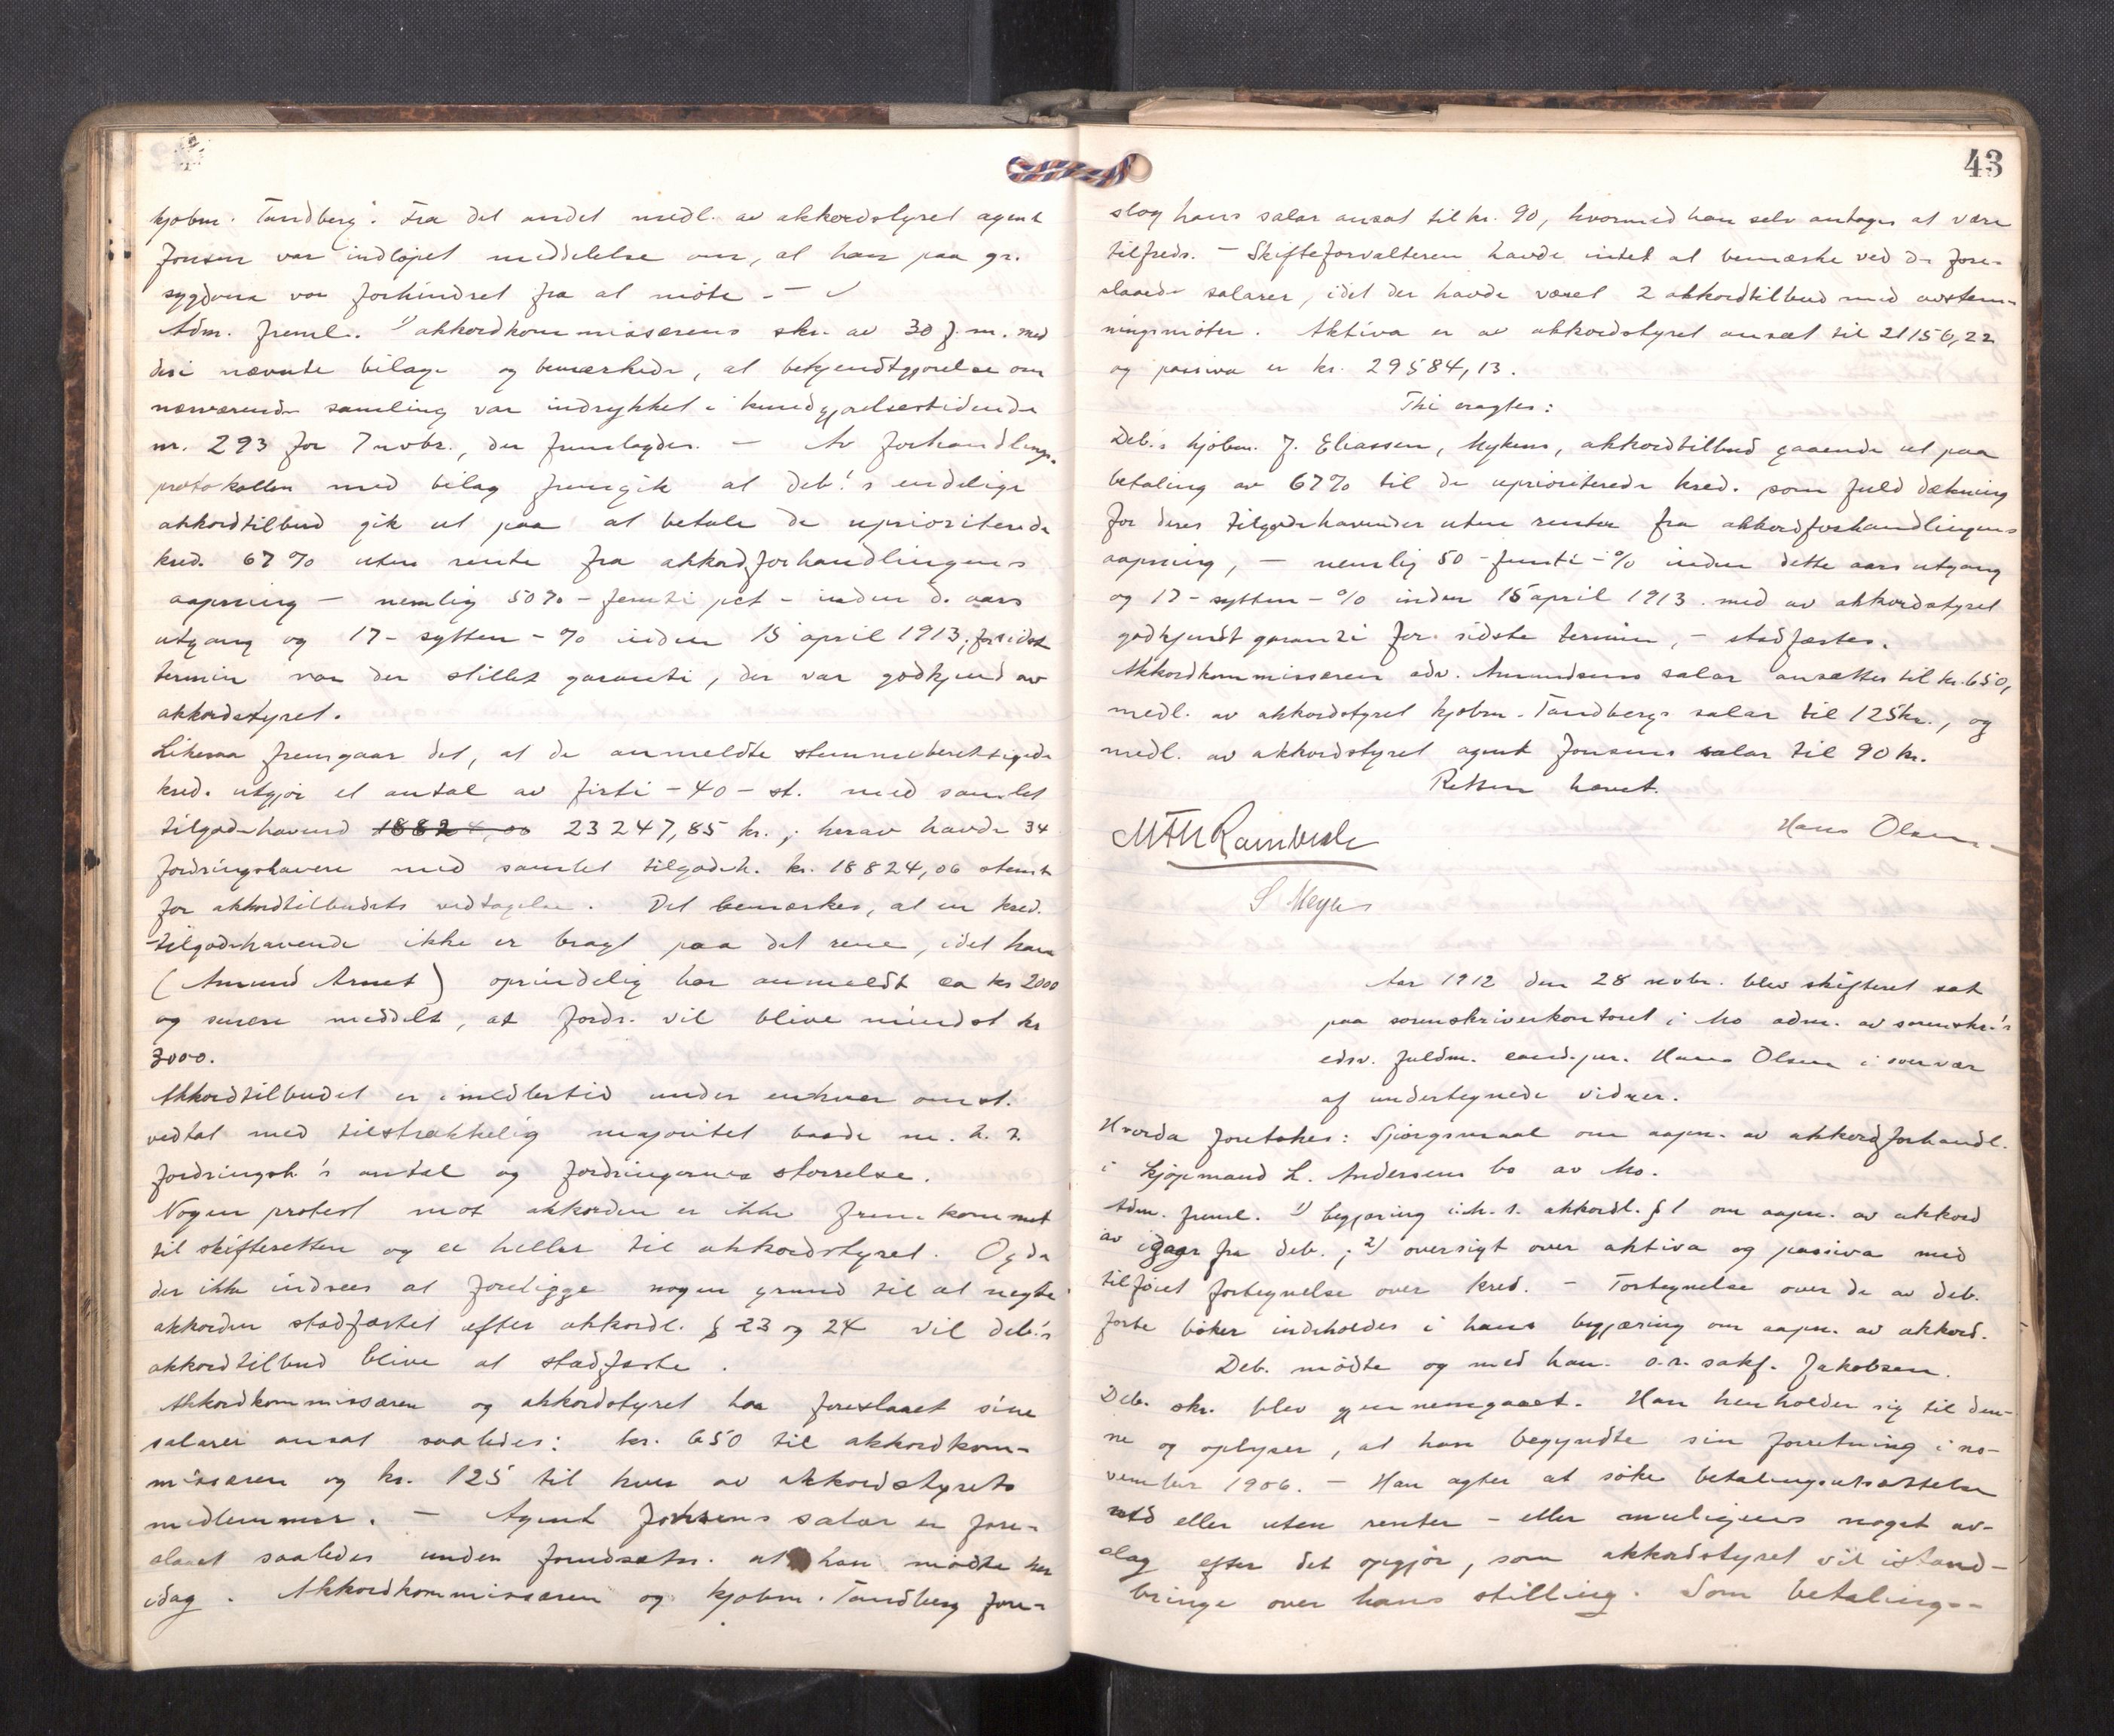 kjøbm. Tandberg. Fra det andet medl. av akkordstyret agent
Jonsen var indløpet meddelelse om, at han paa gr.
sygdom var forhindret fra at møte. –
Adm. freml. 1) akkordkommissærens skr. av 30 f. m. med
deri nævnte bilage og bemærkede, at bekjendtgjørelse om
nærværende samling var indrykket i kundgjørelsestidende
nr. 293 for 7 novbr., der fremlagdes. – Av forhandlings-
protokollen med bilag fremgik at deb.'s endelige
akkordtilbud gik ut paa at betale de uprioriterede
kred. 67 % uten rente fra akkordforhandlingens
aapning – nemlig 50 % – femti pct – inden d. aars
utgang og 17 – sytten – % inden 15 april 1913; for sidste
termin var der stillet garanti, der var godkjend av
akkordstyret.
Likesaa fremgaar det, at de anmeldte stemmeberettigede
kred. utgjør et antal av firti – 40 – st. med samlet
tilgodehavend 18824,00 23247,85 kr.; herav havde 34
fordringshavere med samlet tilgodeh. kr. 18824,06 stemt
for akkordtilbudets vedtagelse. Det bemærkes, at en kred.
tilgodehavende ikke er bragt paa det rene, idet han
(Amund Arnet) oprindelig har anmeldt ca kr 2000
og senere meddelt, at fordr. vil blive mindst kr
3000.
Akkordtilbudet er imidlertid under enhver omst.
vedtat med tilstrækkelig majoritet baade m. h. t.
fordringsh.'s antal og fordringernes størrelse.
Nogen protest mot akkorden er ikke fremkommet
til skifteretten og ei heller til akkordstyret. Og da
der ikke indsees at foreligge nogen grund til at negte
akkorden stadfæstet efter akkordl. § 23 og 24 vil deb.'s
akkordtilbud blive at stadfæste.
Akkordkommissæren og akkordstyret har foreslaaet sine
salærer ansat saaledes: kr. 650 til akkordkom-
missæren og kr. 125 til hver av akkordstyrets
medlemmer. – Agent Jonsens salær er fore-
slaaet saaledes under forudsætn. at han mødte her
idag. Akkordkommissæren og kjøbm. Tandberg fore-
43
slog hans salær ansat til kr. 90, hvormed han selv antages at være
tilfreds. – Skifteforvalteren havde intet at bemærke ved de fore-
slaaede salærer, idet der havde været 2 akkordtilbud med avstem-
ningsmøter. Aktiva er av akkordstyret ansat til 21156,22
og passiva er kr. 29584,13.
Thi eragtes:
Deb.'s kjøbm. J. Eliassen, Mykens, akkordtilbud gaaende ut paa
betaling av 67% til de uprioriterede kred. som fuld dækning
for deres tilgodehavender uten renter fra akkordforhandlingens
aapning, – nemlig 50 – femti – % inden dette aars utgang
og 17 – sytten – % inden 15 april 1913 med av akkordstyret
godkjendt garanti for sidste termin, – stadfæstes.
Akkordkommissæren adv. Amundsens salær ansættes til kr. 650,
medl. av akkordstyret kjøbm. Tandbergs salær til 125 kr., og
medl. av akkordstyret agent Jonsens salær til 90 kr.
Retten hævet.
Hans Olsen
S Meyer
Aar 1912 den 28 novbr. blev skifteret sat
paa sorenskriverkontoret i Mo adm. av sorenskr.'s
edsv. fuldm. cand. jur. Hans Olsen i overvær
af undertegnede vidner.
Hvorda foretokes: Spørgsmaal om aapn. av akkordforhandl.
i kjøpmand L. Andersens bo av Mo.
Adm. freml. 1) begjæring i.h.t. akkordl. § 1 om aapn. av akkord
av idag fra deb.; 2) oversigt over aktiva og passiva med
tilføiet fortegnelse over kred. – Fortegnelse over de av deb.
førte bøker indeholdes i hans begjæring om aapn. av akkord.
Deb. mødte og med ham o.r. sakf. Jakobsen.
Deb. skr. blev gjennemgaaet. Han henholder sig til den-
ne og oplyser, at han begyndte sin forretning i no-
vember 1906. – Han agter at søke betalingsutsættelse
med eller uten renter – eller muligens noget av-
slag efter det opgjør, som akkordstyret vil istand-
bringe over hans stilling. Som betalings-